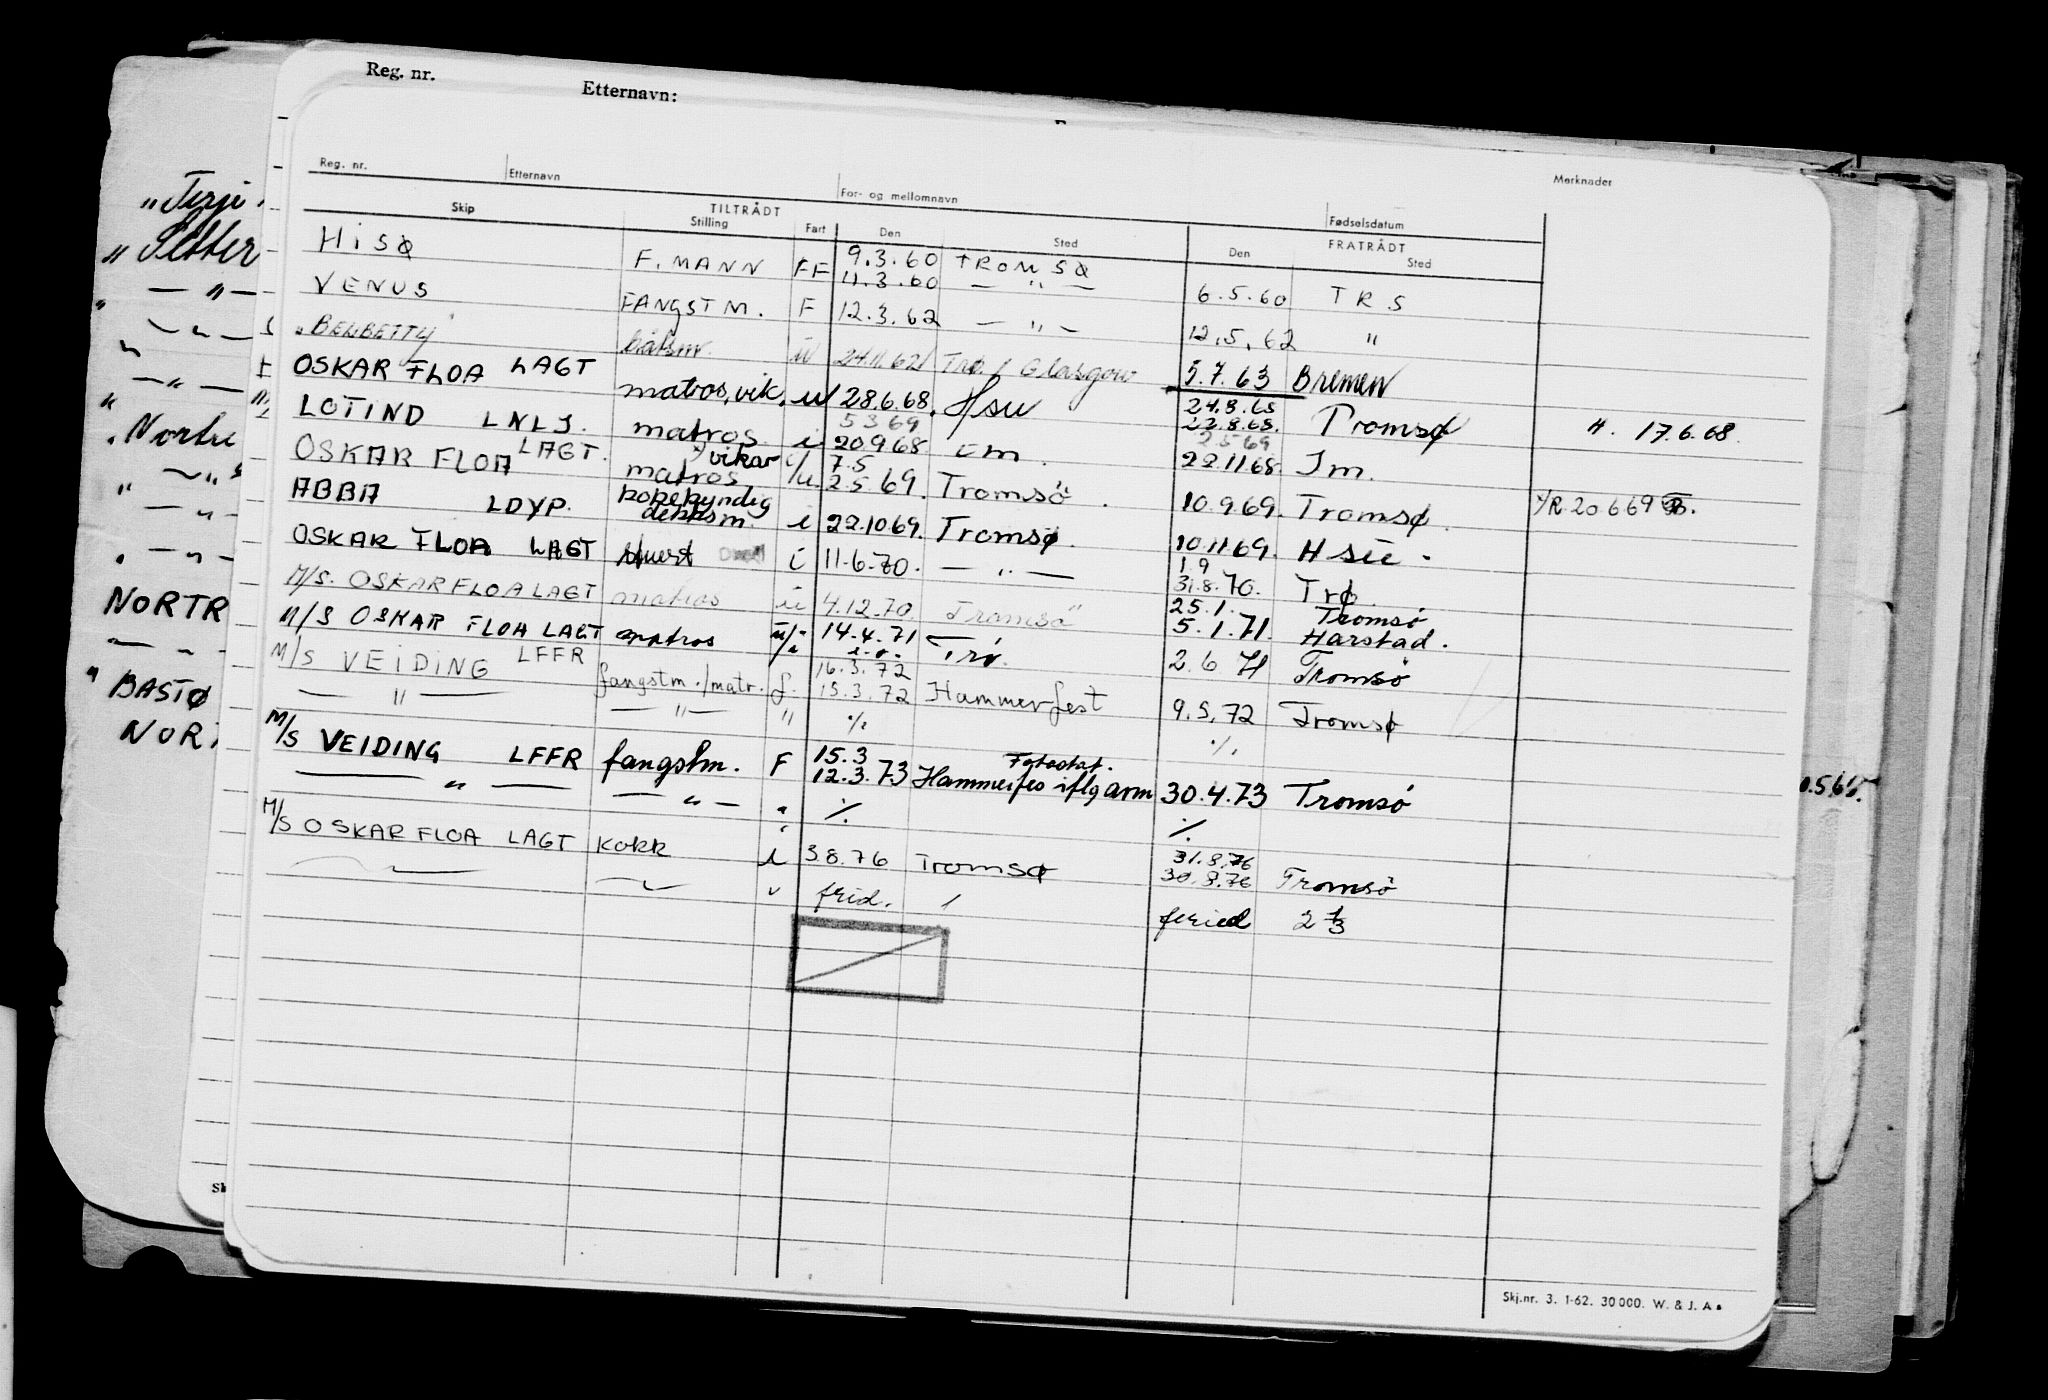 Reg. nr. Etternavn:
Reg. nr. Etternavn For- og mellomnavn Fødselsdatum Merknader
Skip TILTRÅDT Stilling Fart Den Sted FRATRÅDT Den Sted
HISØ F. MANN FF 9.3.60 TROMSØ
11.3.60 — " — 6.5.60 TRS
VENUS FANGSTM. F 12.3.62 — " — 12.5.62 "
"BELBETTY" båtsm. u 24.11.62 Trø. / Glasgow 5.7.63 Bremen
OSKAR FLOA LAGT matros, vik. u 28.6.68. Hsu 24.8.68 23.8.68. Tromsø H. 17.6.68.
LOTIND LNLJ. matros i 5369 20.9.68. Em. 2569 22.11.68. Im.
OSKAR FLOA LAGT. matros vikar i/u. 7.5 2.5.69. Tromsö. 10.9.69. Tromsø. 20669
ABBA LDYP. kokekyndig dekksm. i 22.10.69. Tromsø. 10.11.69. Hsu.
OSKAR FLOA LAGT stuert i 11.6.70. — " — 1.9 31.8.70. Trø
M/S. OSKAR FLOA LAGT matros u 4.12.70. Tromsö 25.1. Tromsø 5.1.71. Harstad.
M/S OSKAR FLOA LAGT matros u/i 14.4.71 Trø. 2.6.71 Tromsö
M/S VEIDING LFFR fangstm./matr. f. 16.3.72 15.3.72 Hammerfest 9.5.72 Tromsø
— " — — " — " ./. ./.
M/S VEIDING LFFR fangstm. F 15.3 12.3.73 Hammerfes iflg avm Fotostat. 30.4.73 Tromsö
— " — — " — " ./. ./.
M/S OSKAR FLOA LAGT KOKK i 3.8.76 Tromsø 31.8.76 30.8.76 Tromsö
frid. / feried 2 1/3
"Terje
" Setter
— " —
"Nortu
— " —
NORTR
" BASTØ
NORT
0.5.65.
Skj.nr. 3. 1-62. 30 000. W. & J. A s